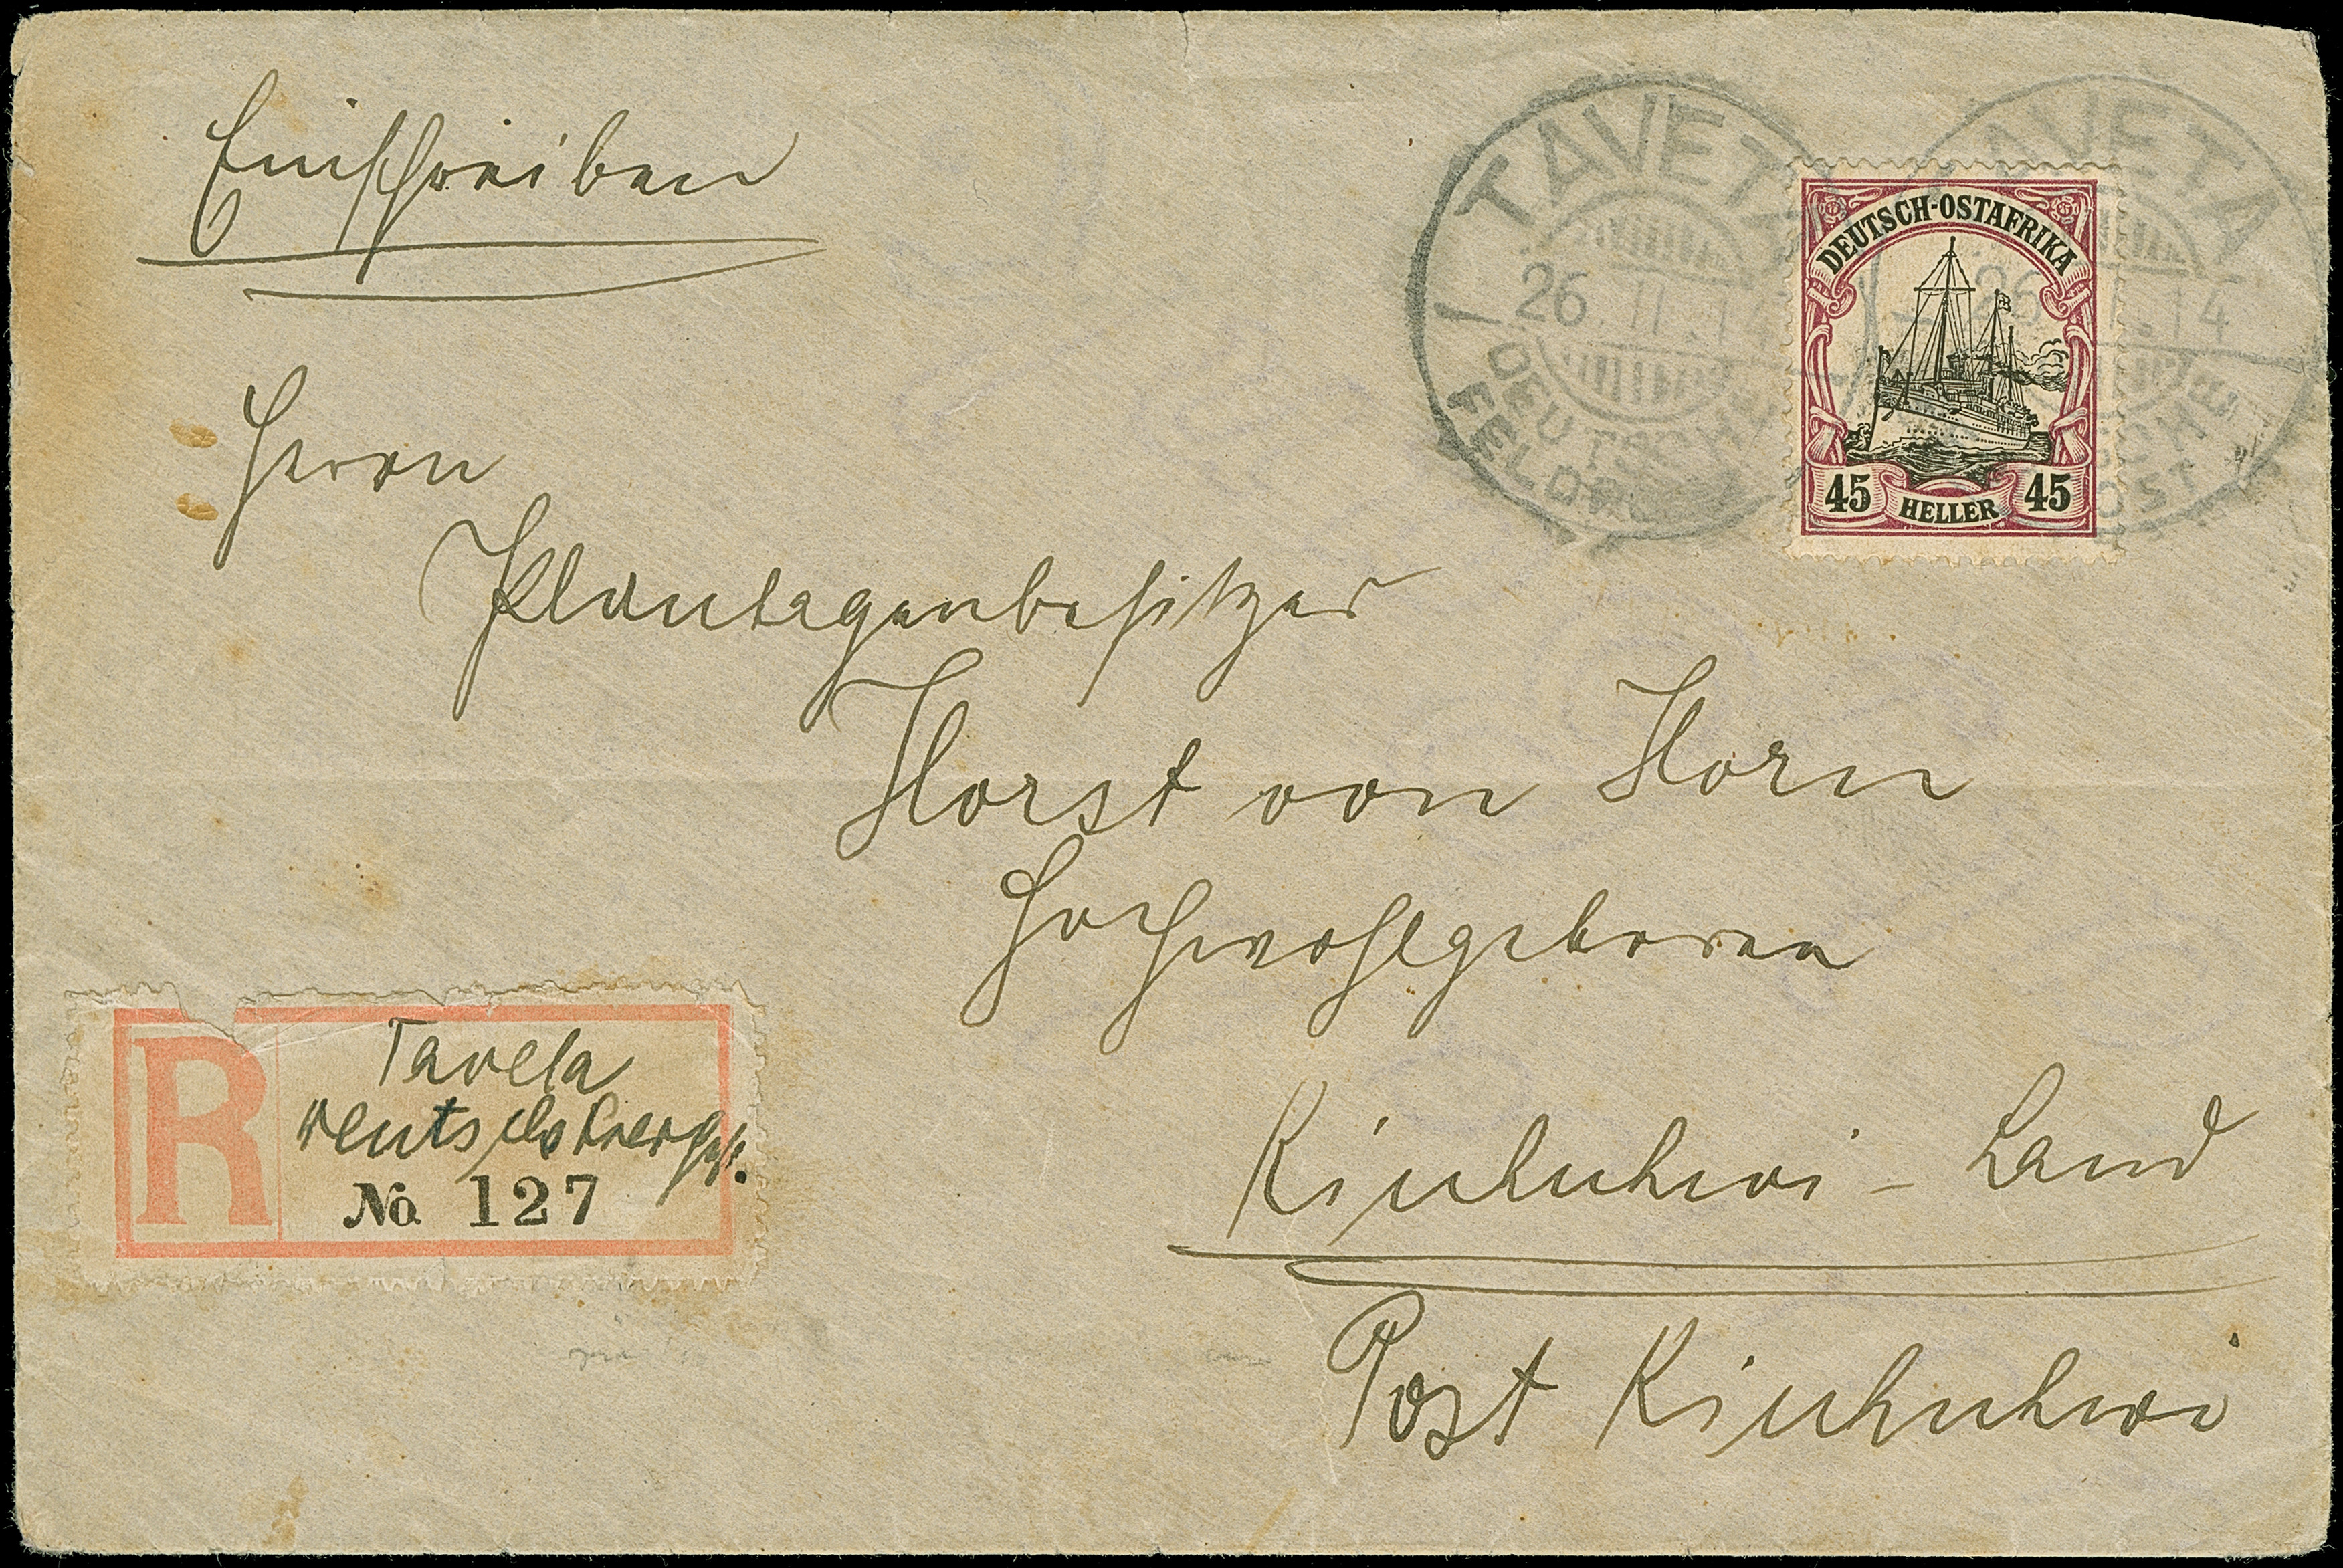 Einschreiben
TAVETA
26.11.14
DEUTSCHE
FELDPOST
TAVETA
26.11.14
DEUTSCHE
FELDPOST
DEUTSCH-OSTAFRIKA
45 HELLER 45
Herrn
Plantagenbesitzer
Horst von Horn
Hochwohlgeboren
R
Taveta
deutsch
No 127
Kiuhuhwi - Land
Post Kiuhuhwi